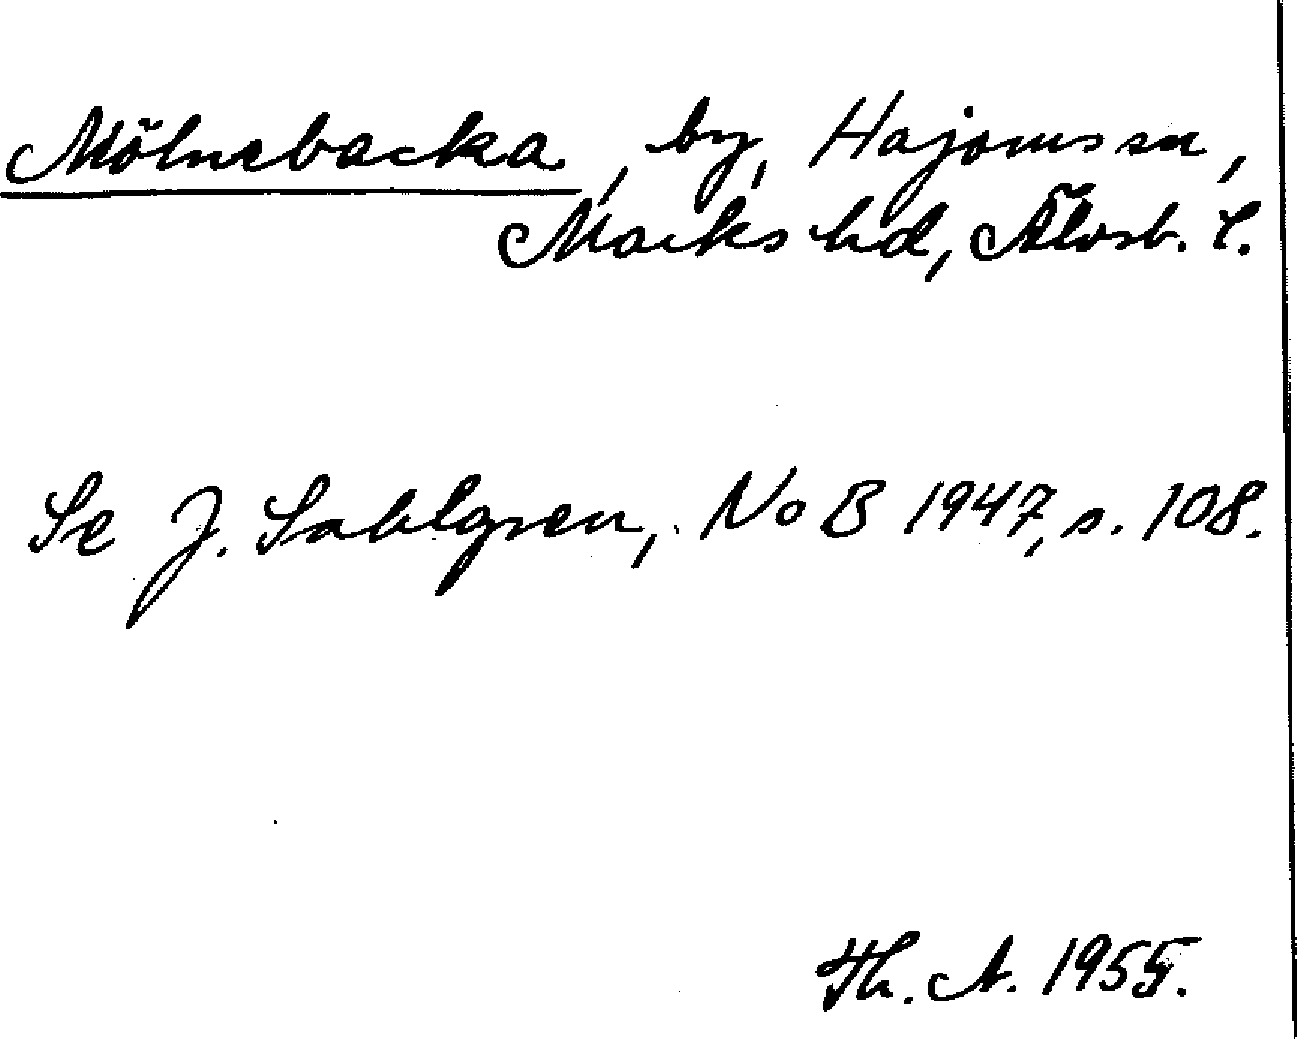 Mölnebacka, by, Hajomssn,
Marks hd, Älvsb. l.
Se J. Sahlgren, NoB 1947, s. 108.
Th. A. 1955.